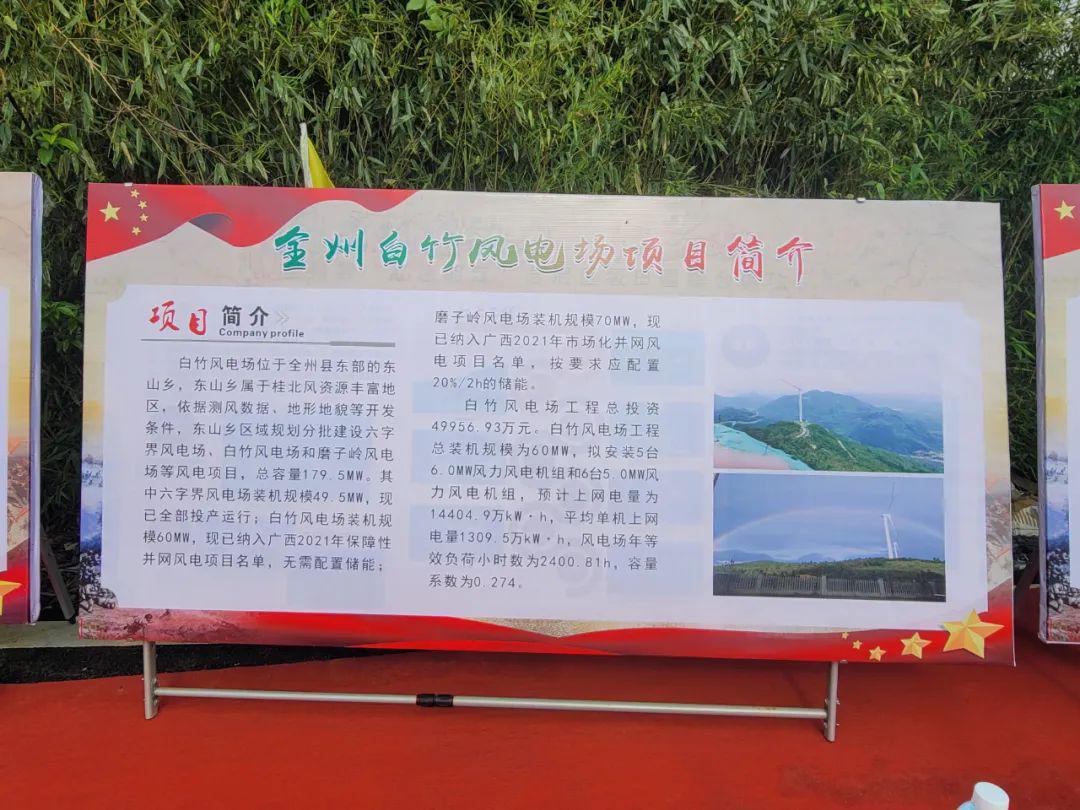 全州白竹风电场项目简介
项目简介
Company profile
白竹风电场位于全州县东部的东
山乡，东山乡属于桂北风资源丰富地
区，依据测风数据、地形地貌等开发
条件，东山乡区域规划分批建设六字
界风电场、白竹风电场和磨子岭风电
场等风电项目，总容量179.5MW。其
中六字界风电场装机规模49.5MW，现
已全部投产运行；白竹风电场装机规
模60MW，现已纳入广西2021年保障性
并网风电项目名单，无需配置储能；
磨子岭风电场装机规模70MW，现
已纳入广西2021年市场化并网风
电项目名单，按要求应配置
20%/2h的储能。
白竹风电场工程总投资
49956.93万元。白竹风电场工程
总装机规模为60MW，拟安装5台
6.0MW风力风电机组和6台5.0MW风
力风电机组，预计上网电量为
14404.9万kW·h，平均单机上网
电量1309.5万kW·h，风电场年等
效负荷小时数为2400.81h，容量
系数为0.274。